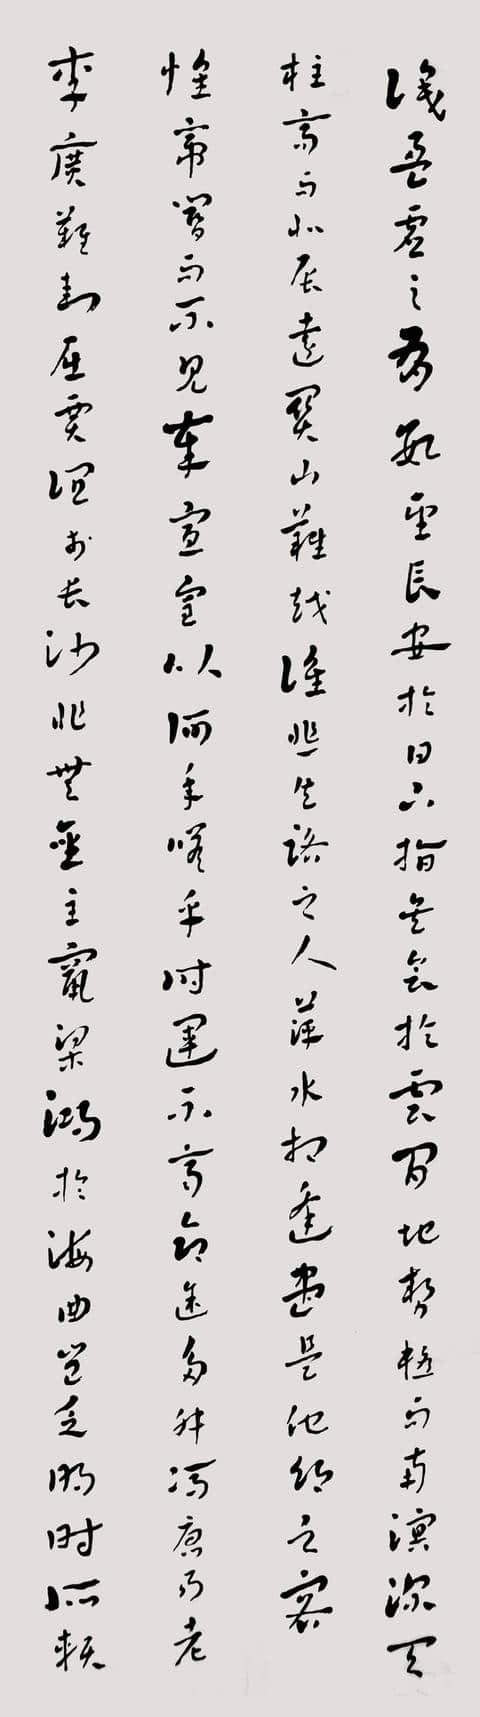 識盈虛之有數望長安於日下指吳會於雲間地勢極而南溟深天
柱高而北辰遠關山難越誰悲失路之人萍水相逢盡是他鄉之客
懷帝閽而不見奉宣室以何年嗟乎時運不齊命途多舛馮唐易老
李廣難封屈賈誼於長沙非無聖主竄梁鴻於海曲豈乏明時所賴